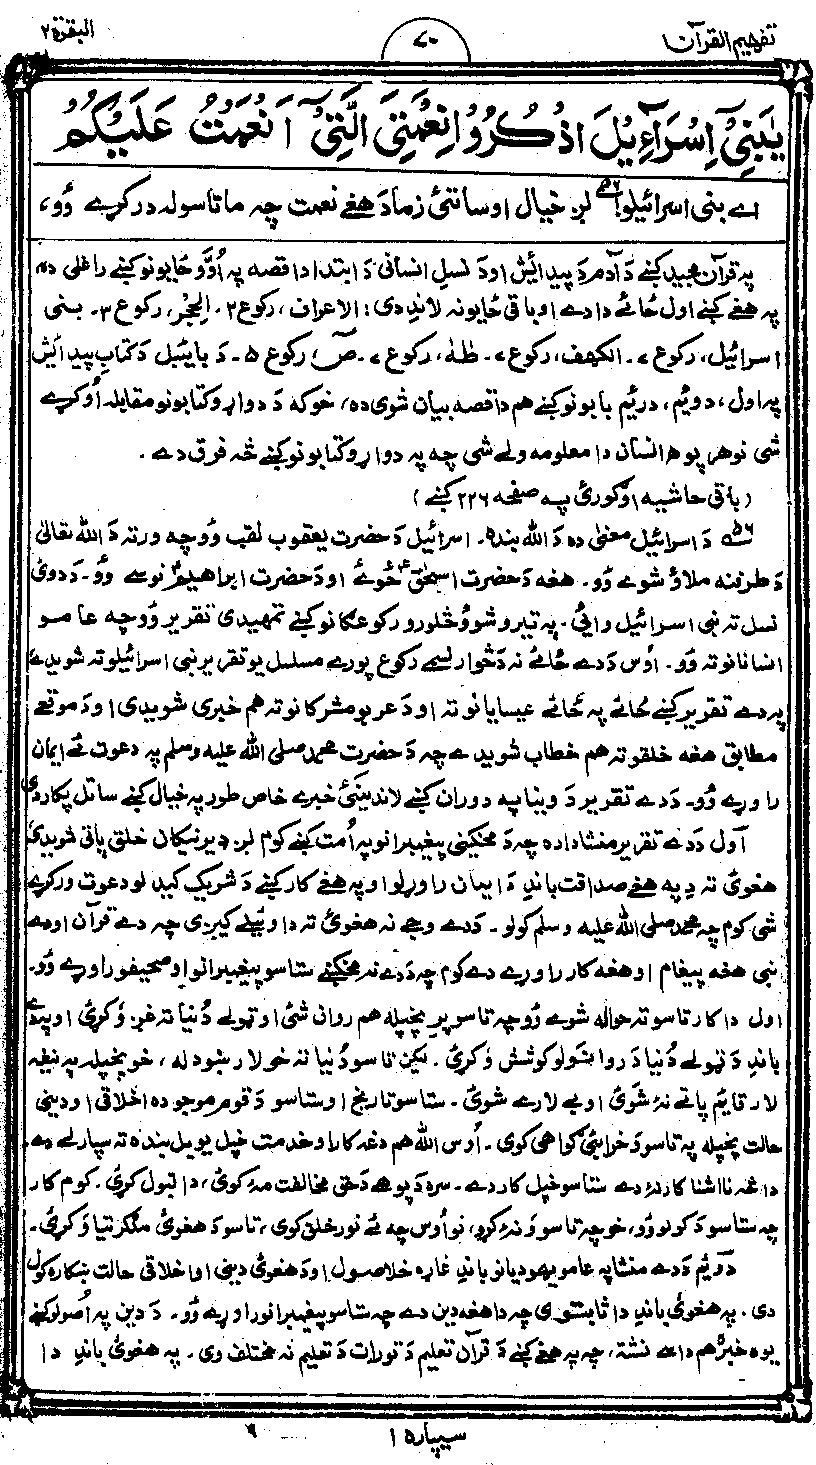 تفهيم القرآن
٧٠
البقرة ٢
يٰبَنِىْٓ اِسْرَآءِيْلَ اذْكُرُوْا نِعْمَتِىَ الَّتِىْٓ اَنْعَمْتُ عَلَيْكُمْ
اے بنی اسرائیلو! ٥٦ لږ خیال اوساتئ زما دَ هغے نعمت چه ما تاسو له درکړے وُو،
په قرآن مجید کښے دَ آدم دَ پیدائش او دَ نسلِ انسانی دَ ابتدا دا قصه په اُوؤ ځایونو کښے راغلی ده
په هغے کښے اول ځائے دا دے او باقی ځایونه لاندِ دی: الاعراف، رکوع ٢. الحِجْر، رکوع ٣. بنی
اسرائیل، رکوع ٧. الکهف، رکوع ٧. طٰهٰ، رکوع ٧. صٓ، رکوع ٥. دَ بائیبل دَ کتاب پیدائش
په اول، دوئیم، دریئم بابونو کښے هم دا قصه بیان شوی ده، خو که دَ دواړو کتابونو مقابله اُوکړے
شی نو هر پوه انسان دا معلومه ولے شی چه په دواړو کتابونو کښے څه فرق دے.
(باقی حاشیه اوګورئ په صفحه ٢٢٦ کښے)
٥٦ دَ اسرائیل معنٰی ده دَ الله بنده. اسرائیل دَ حضرت یعقوب لقب وُو چه ورته دَ الله تعالٰی
دَ طرفنه ملاؤ شوے وُو. هغه دَ حضرت اسحٰق ځوئے او دَ حضرت ابراهیم نوسے وُو. دَ دوئ
نسل ته بنی اسرائیل وائی. په تیرو شوؤ څلورو رکوعګانو کښے تمهیدی تقریر وُو چه عامو
انسانانو ته وُو. اُوس دَ دے ځائے نه دَ څوارلسمے رکوع پورے مسلسل یو تقریر بنی اسرائیلو ته شویدے
په دے تقریر کښے ځائے په ځائے عیسایانو ته او دَ عربو مشرکانو ته هم خبری شویدی او دَ موقعے
مطابق هغه خلقو ته هم خطاب شویدے چه دَ حضرت محمد صلی الله علیه وسلم په دعوت ئے ایمان
راوړے وُو. دَ دے تقریر دَ وینا په دوران کښے لاندینئ خبرے خاص طور په خیال کښے ساتل پکار دی
اول دَ دے تقریر منشا دا ده چه دَ مخکینی پیغمبرانو په اُمت کښے کوم لږ ډیر نیکان خلق باقی شویدی
هغوئ ته دِ په هغے صداقت باندِ دَ ایمان راوړلو او په هغے کار کښے دَ شریک کیدلو دعوت ورکړے
شی کوم چه محمد صلی الله علیه وسلم کولو. دَ دے وجے نه هغوئ ته دا وئیلے کیږی چه دے قرآن او دے
نبی هغه پیغام او هغه کار راوړے دے کوم چه دَ دے نه مخکښے ستاسو پیغمبرانو او صحیفو راوړے وُو.
اول دا کار تاسو ته حواله شوے وُو چه تاسو پرِ پخپله هم روان شئ او ټولے دُنیا ته غږ وُکړئ او پدے
باندِ دَ ټولے دُنیا دَ روانولو کوشش وُکړئ. لیکن تاسو دُنیا ته خو لار ښودله، خو پخپله په نیغه
لار قایٔم پاتے نهٔ شوئ او بے لارے شوئ. ستاسو تاریخ او ستاسو دَ قوم موجوده اخلاقی او دینی
حالت پخپله په تاسو دَ خرابئ ګواهی کوی. اُوس الله هم دغه کار او خدمت خپل یو بل بنده ته سپارلے دے
دا څه نااشنا کار نهٔ دے ستاسو خپل کار دے. سره دَ پوهے دَ حق مخالفت مهٔ کوئ، دا قبول کړئ. کوم کار
چه ستاسو دَ کولو وُو، خو چه تاسو ونهٔ کړو، نو اُوس چه ئے نور خلق کوی، تاسو دَ هغوئ ملګرتیا وُکړئ.
دوئیم دَ دے منشا په عامو یهودیانو باندِ غاړه خلاصول او دَ هغوئ دینی او اخلاقی حالت ښکاره کول
دی. په هغوئ باندِ دا ثابتوی چه دا هغه دین دے چه ستاسو پیغمبرانو راوړے وُو. دَ دین په اُصولو کښے
یوه خبره هم داسے نشته، چه په هغے کښے دَ قرآن تعلیم دَ تورات دَ تعلیم نه مختلف وی. په هغوئ باندِ دا
سیپاره ١
٩